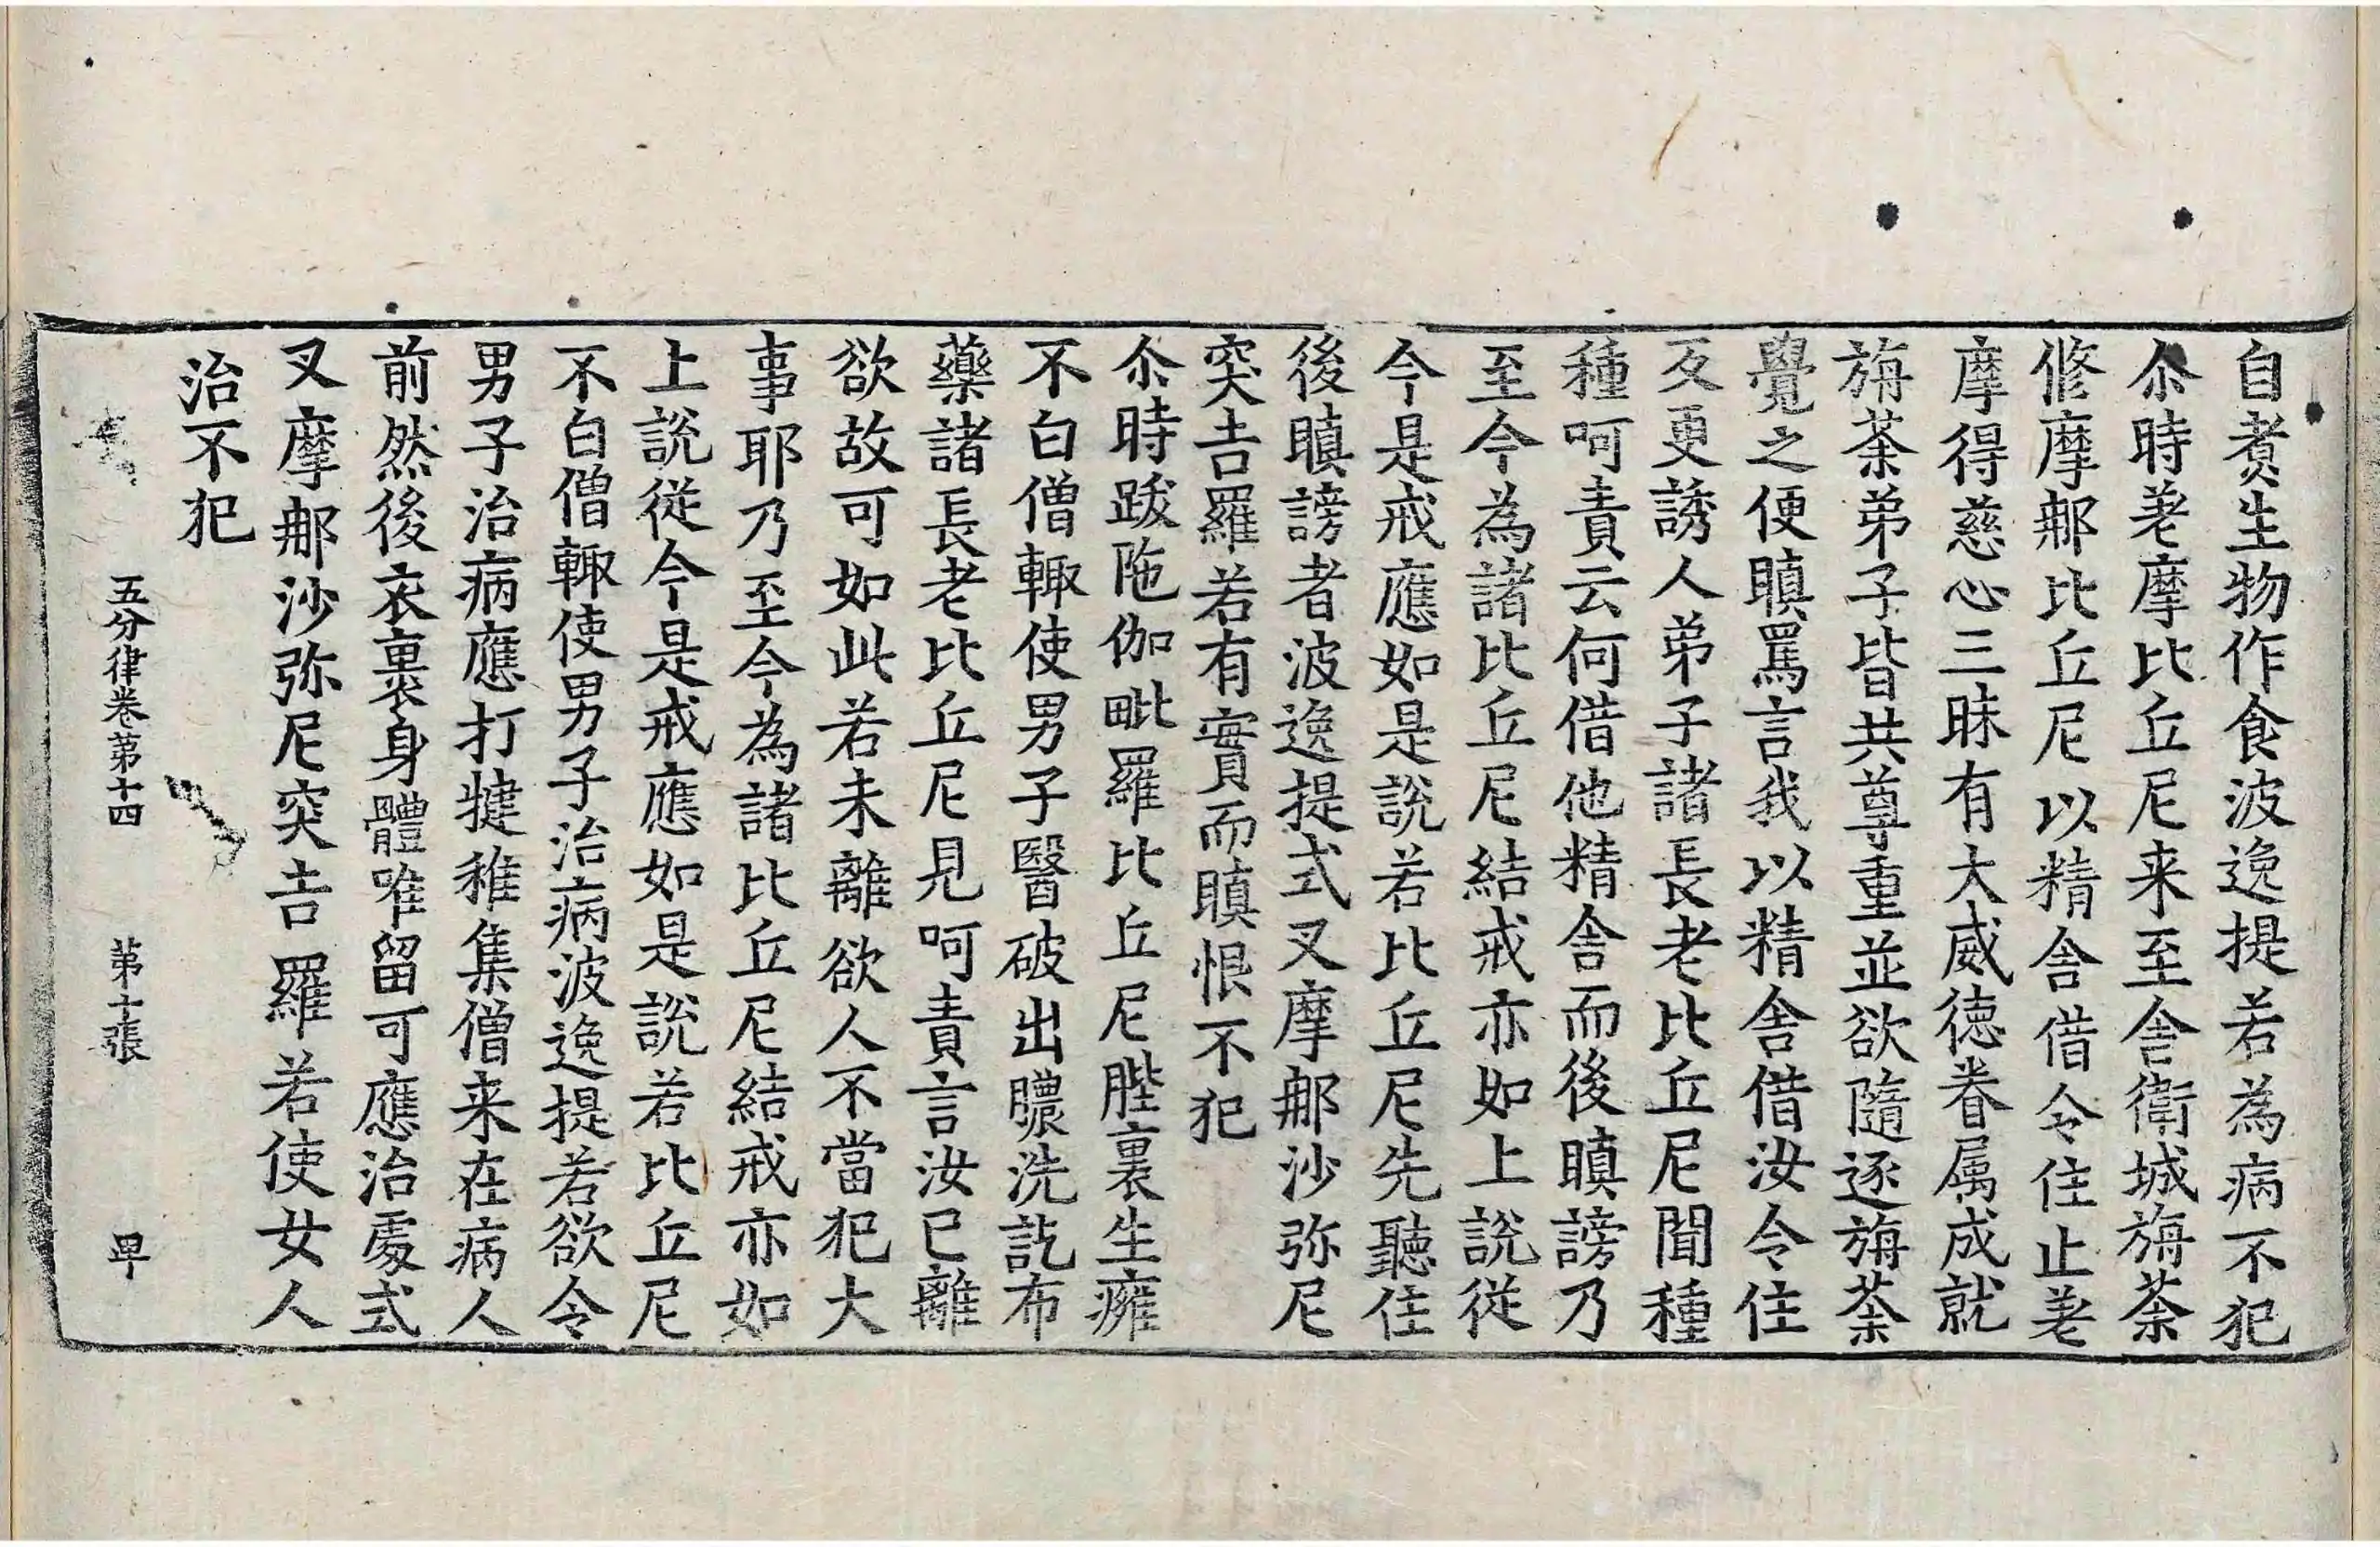 自煮生物作食波逸提若為病不犯
尒時差摩比丘尼来至舍衛城旃荼
脩摩那比丘尼以精舍借令住止差
摩得慈心三昧有大威徳眷属成就
旃荼弟子皆共尊重並欲隨逐旃荼
覺之便瞋罵言我以精舍借汝令住
反更誘人弟子諸長老比丘尼聞種
種呵責云何借他精舍而後瞋謗乃
至今為諸比丘尼結戒亦如上說從
今是戒應如是說若比丘尼先聽住
後瞋謗者波逸提式叉摩那沙弥尼
突吉羅若有實而瞋恨不犯
尒時跋陁伽毗羅比丘尼䏶裏生癕
不白僧輙使男子醫破出膿洗訖布
藥諸長老比丘尼見呵責言汝已離
欲故可如此若未離欲人不當犯大
事耶乃至今為諸比丘尼結戒亦如
上說從今是戒應如是說若比丘尼
不白僧輙使男子治病波逸提若欲令
男子治病應打揵稚集僧来在病人
前然後衣裹身體唯留可應治處式
叉摩那沙弥尼突吉羅若使女人
治不犯
五分律卷第十四 第十張 卑